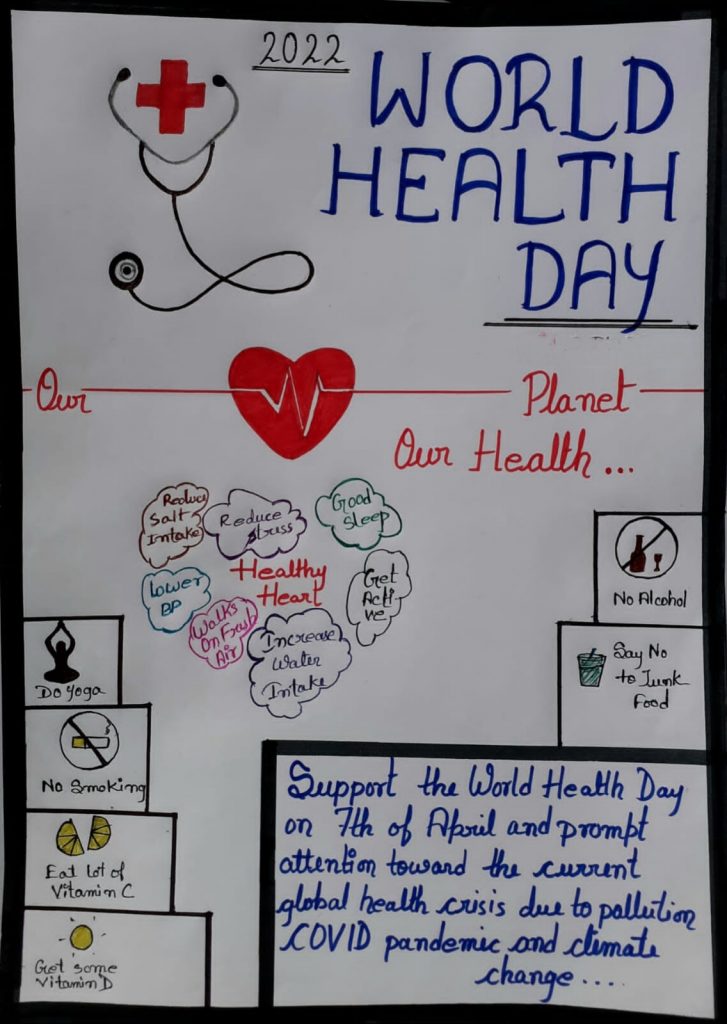 2022
WORLD
HEALTH
DAY
Our Planet
Our Health...
Reduce
Salt
Intake
Reduce
Stress
Good
Sleep
Lower
BP
Healthy
Heart
Get
Acti
ve
Walks
On Fresh
Air
Increase
Water
Intake
No Alcohol
Say No
to Junk
Food
Do Yoga
No Smoking
Eat lot of
Vitamin C
Get some
Vitamin D
Support the World Health Day
on 7th of April and prompt
attention toward the current
global health crisis due to pollution
COVID pandemic and climate
change....